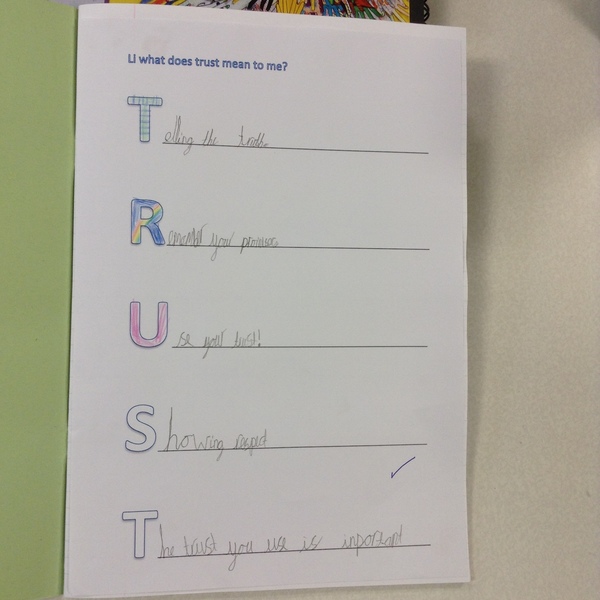 LI what does trust mean to me?
Telling the truth
Remember your promises
Use your trust!
Showing respect
The trust you use is inportant